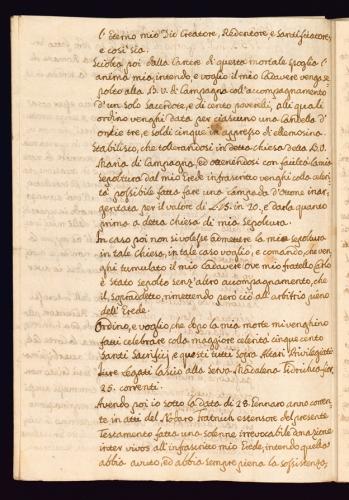 l'eterno mio Dio Creatore, Redentore, e Santificatore,
e così sia.
Sciolta poi dalla Carcere di questa mortale spoglia l'
anima mia, intendo, e voglio il mio Cadavere venga se-
polto alla B. V. di Campagna coll'accompagnamento
d'un solo Sacerdote, e di cento poverelli, alli quali
ordino venghi data per ciascuno una Candella d'
oncie tre, e soldi cinque in appresso di ellemosina.
Stabilisco, che tolerandosi in detta chiesa della B. V.
Maria di Campagna, ed ottenendosi con facilità la mia
Sepoltura dal mio Erede infrascritto venghi colla celeri-
tà possibile fatta fare una lampada d'ottone inar-
gentata per il valore di 20. e darla quanto
prima a detta chiesa di mia Sepoltura.
In caso poi non si volesse admettere la mia sepoltura
in tale chiesa, in tale caso voglio, e comando, che ven-
ghi tumulato il mio Cadavere ove mio fratello Carlo
è stato sepolto senz'altro accompagnamento, che
il sopradetto, rimettendo però ciò all'arbitrio pieno
dell'Erede.
Ordino, e voglio, che dopo la mia morte mi venghino
fatti celebrare colla maggiore celerità cinque cento
Santi Sacrifizj, e questi tutti sopra Altari Privilegiati
lascio alla Serva Madalena
25. correnti.
Avendo poi io sotto la data di 28. Gennaro anno corren-
te in atti del Notaro estensore del presente
Testamento fatta una solenne irrevocabile donazione
inter vivos all'infrascritto mio Erede, intendo quella
abbia avuto, ed abbia sempre piena la sussistenza,